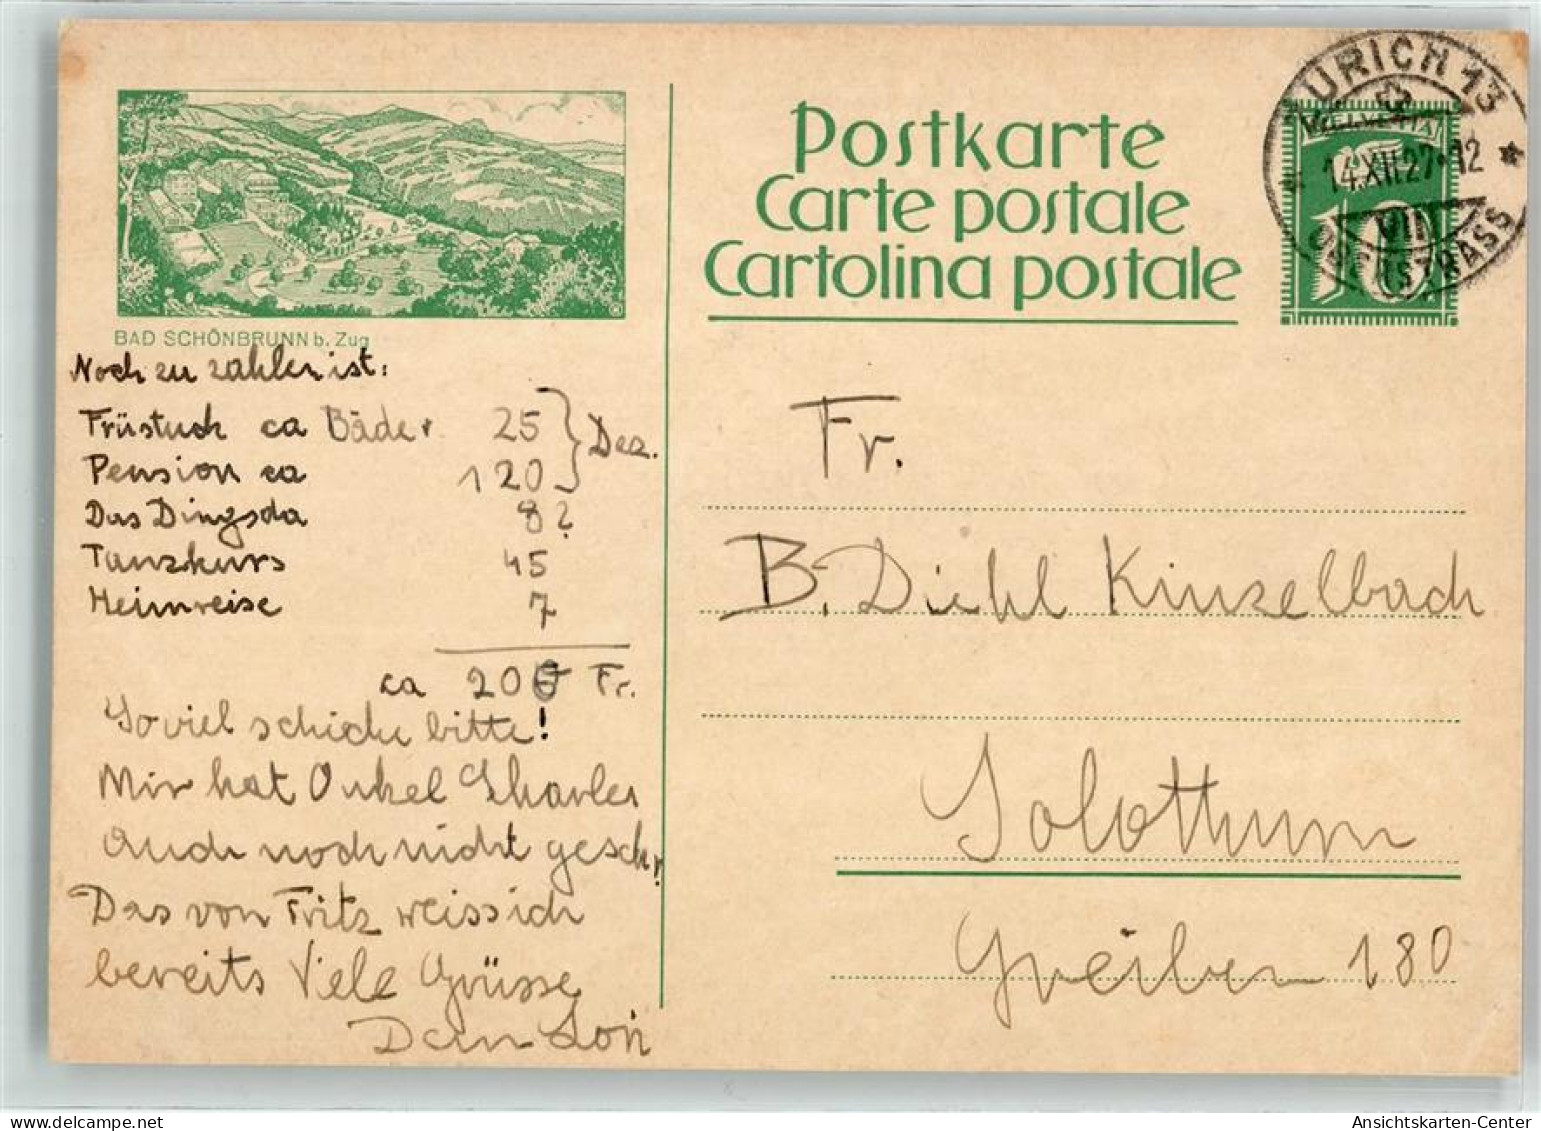 BAD SCHÖNBRUNN b. Zug
Noch zu zahlen ist:
Früstuck ca Bäder 25 } Dez.
Pension ca 120
Das Dingsda 8?
Tanzkurs 45
Heimreise 7
ca 200 Fr.
Soviel schicke bitte!
Mir hat Onkel Charles
Auch noch nicht geschr.
Das von Fritz weiss ich
bereits Viele Grüsse
Dein
Postkarte
Carte postale
Cartolina postale
ZURICH 13
HELVETIA
14.XII.27-12
VIII
OBERSTRASS
10
Fr.
B. Diehl Kinzelbach
Solothurn
180
Ansichtskarten-Center
www.delcampe.net